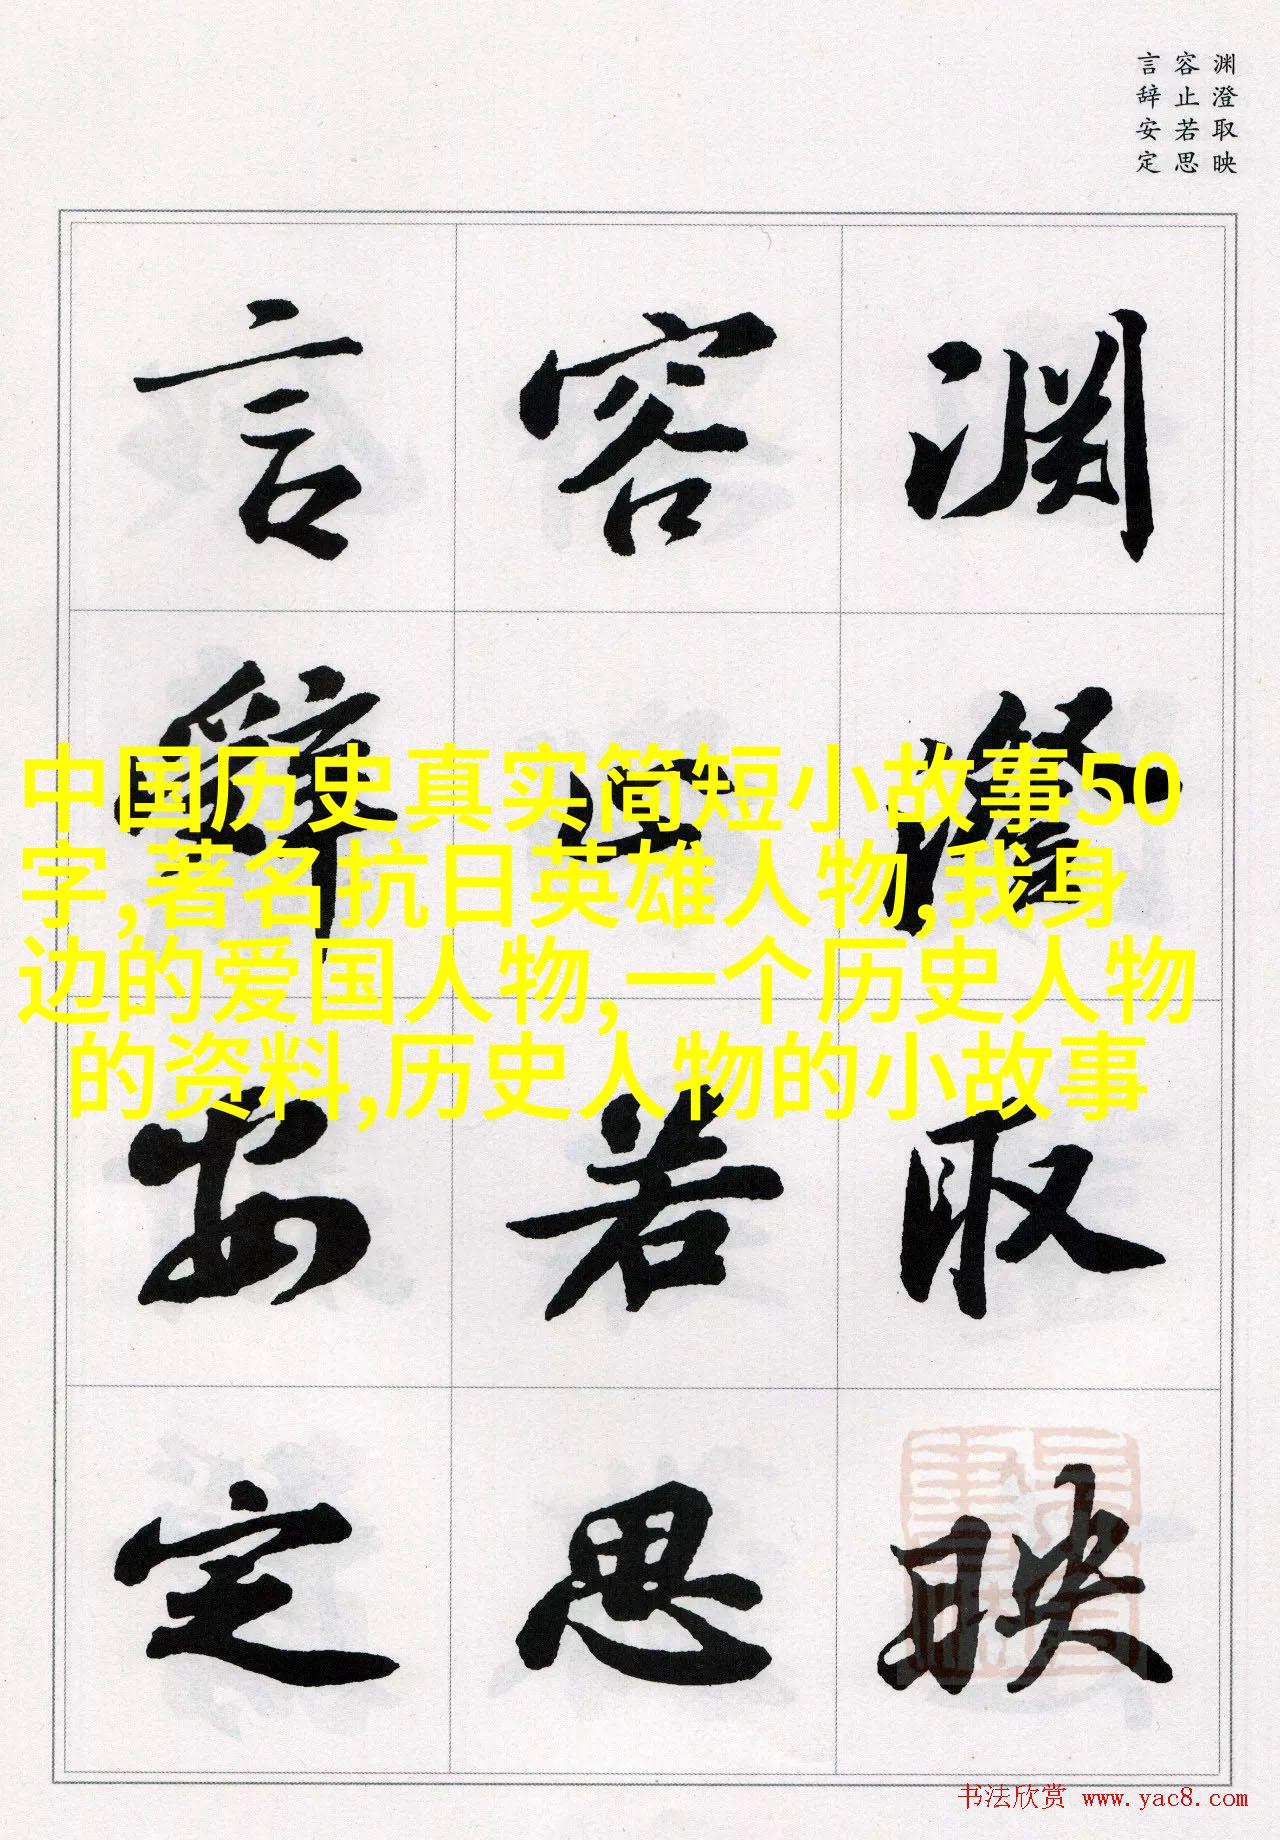 渊澄取映
容止若思
言辞安定
渊澄取映
容止若思
言辞安定
中国历史真实简短小故事50
字,著名抗日英雄人物,我身
边的爱国人物,一个历史人物
的资料,历史人物的小故事
书法欣赏 www.yac8.com